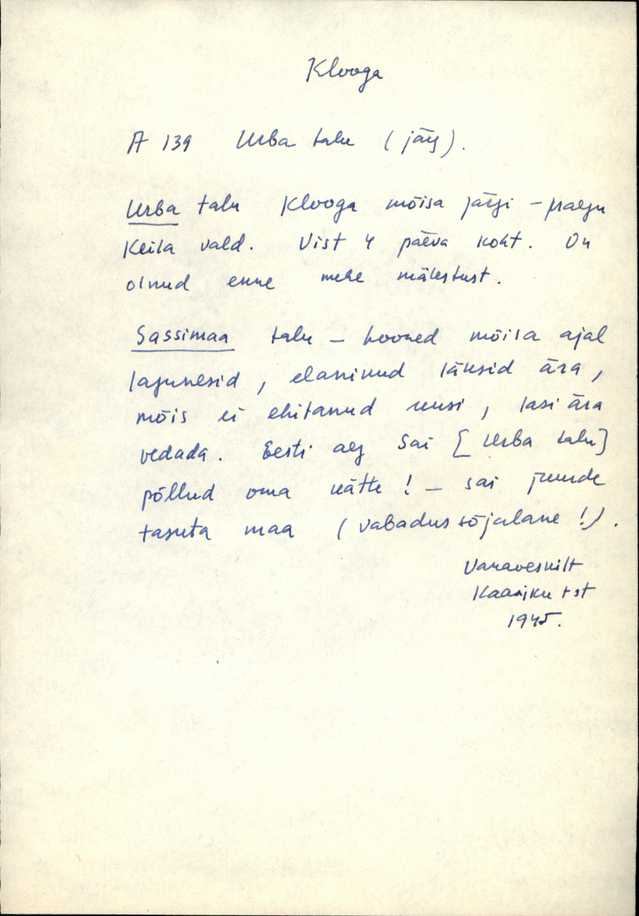 Klooga
A 139 Urba talu (järg).
Urba talu Klooga mõisa järgi - praegu
Keila vald. Vist 4 päeva koht. On
olnud enne mehe mälestust.
Sassimaa talu - hooned mõisa ajal
lagunesid, elaninud läksid ära,
mõis ei ehitanud uusi, lasi ära
vedada. Eesti aeg sai [Urba talu]
põllud oma kätte! - sai juurde
tasuta maa (vabadussõjalane!).
Vanaveskilt
Kaasiku tst
1945.